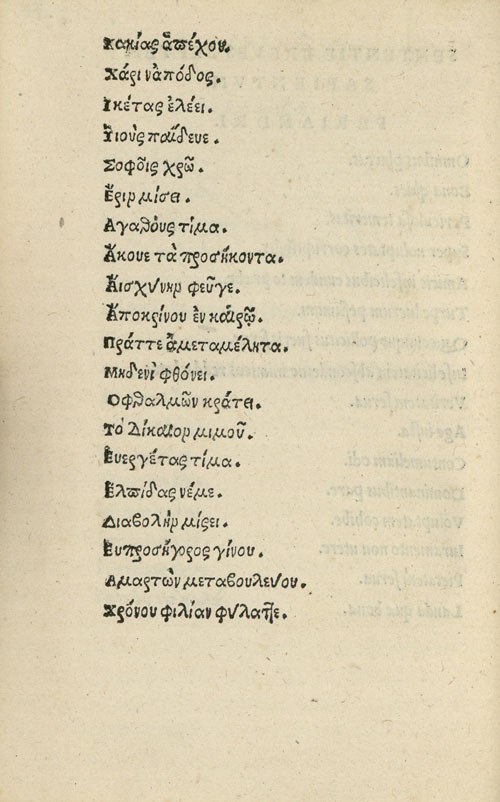 Κακίας ἀπέχου.
Χάριν ἀπόδος.
Ικέτας ἐλέει.
Υἱοὺς παίδευε.
Σοφοῖς χρῶ.
Ἔριν μίσει.
Αγαθοὺς τίμα.
Ἄκουε τὰ προσήκοντα.
Ἀισχύνην φεῦγε.
Ἀποκρίνου ἐν καιρῷ.
Πράττε ἀμεταμέλητα.
Μηδενὶ φθόνει.
Οφθαλμῶν κράτει.
Τὸ Δίκαιον μιμοῦ.
Ἐυεργέτας τίμα.
Ἐλπίδας νέμε.
Διαβολὴν μίσει.
Ἐυπροσήγορος γίνου.
Αμαρτὼν μεταβουλεύου.
Χρόνου φιλίαν φύλαττε.